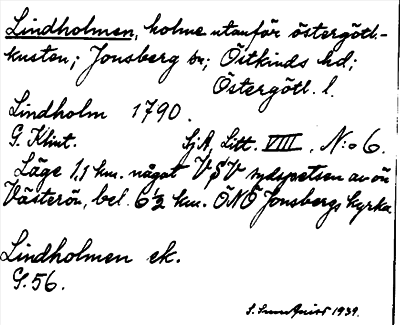 Lindholmen, holme utanför östergötl.-
kusten; Jonsberg sn; Östkinds hd;
Östergötl. l.
Lindholm 1790.
G. Klint. Sj.A, Litt. VIII, N:o 6.
Läge 1,1 km. något V§V sydspetsen av ön
Västerön, bel. 6½ km. ÖNÖ Jonsbergs kyrka
Lindholmen ek.
G.56.
1939.